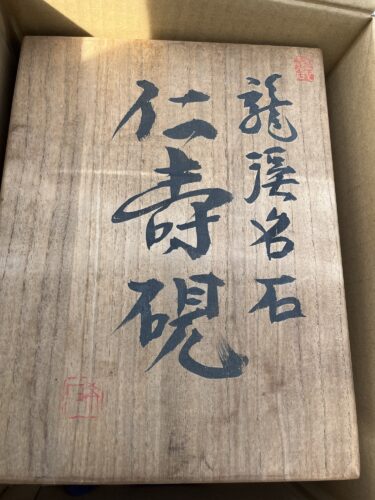 龍渓名石
仁壽硯